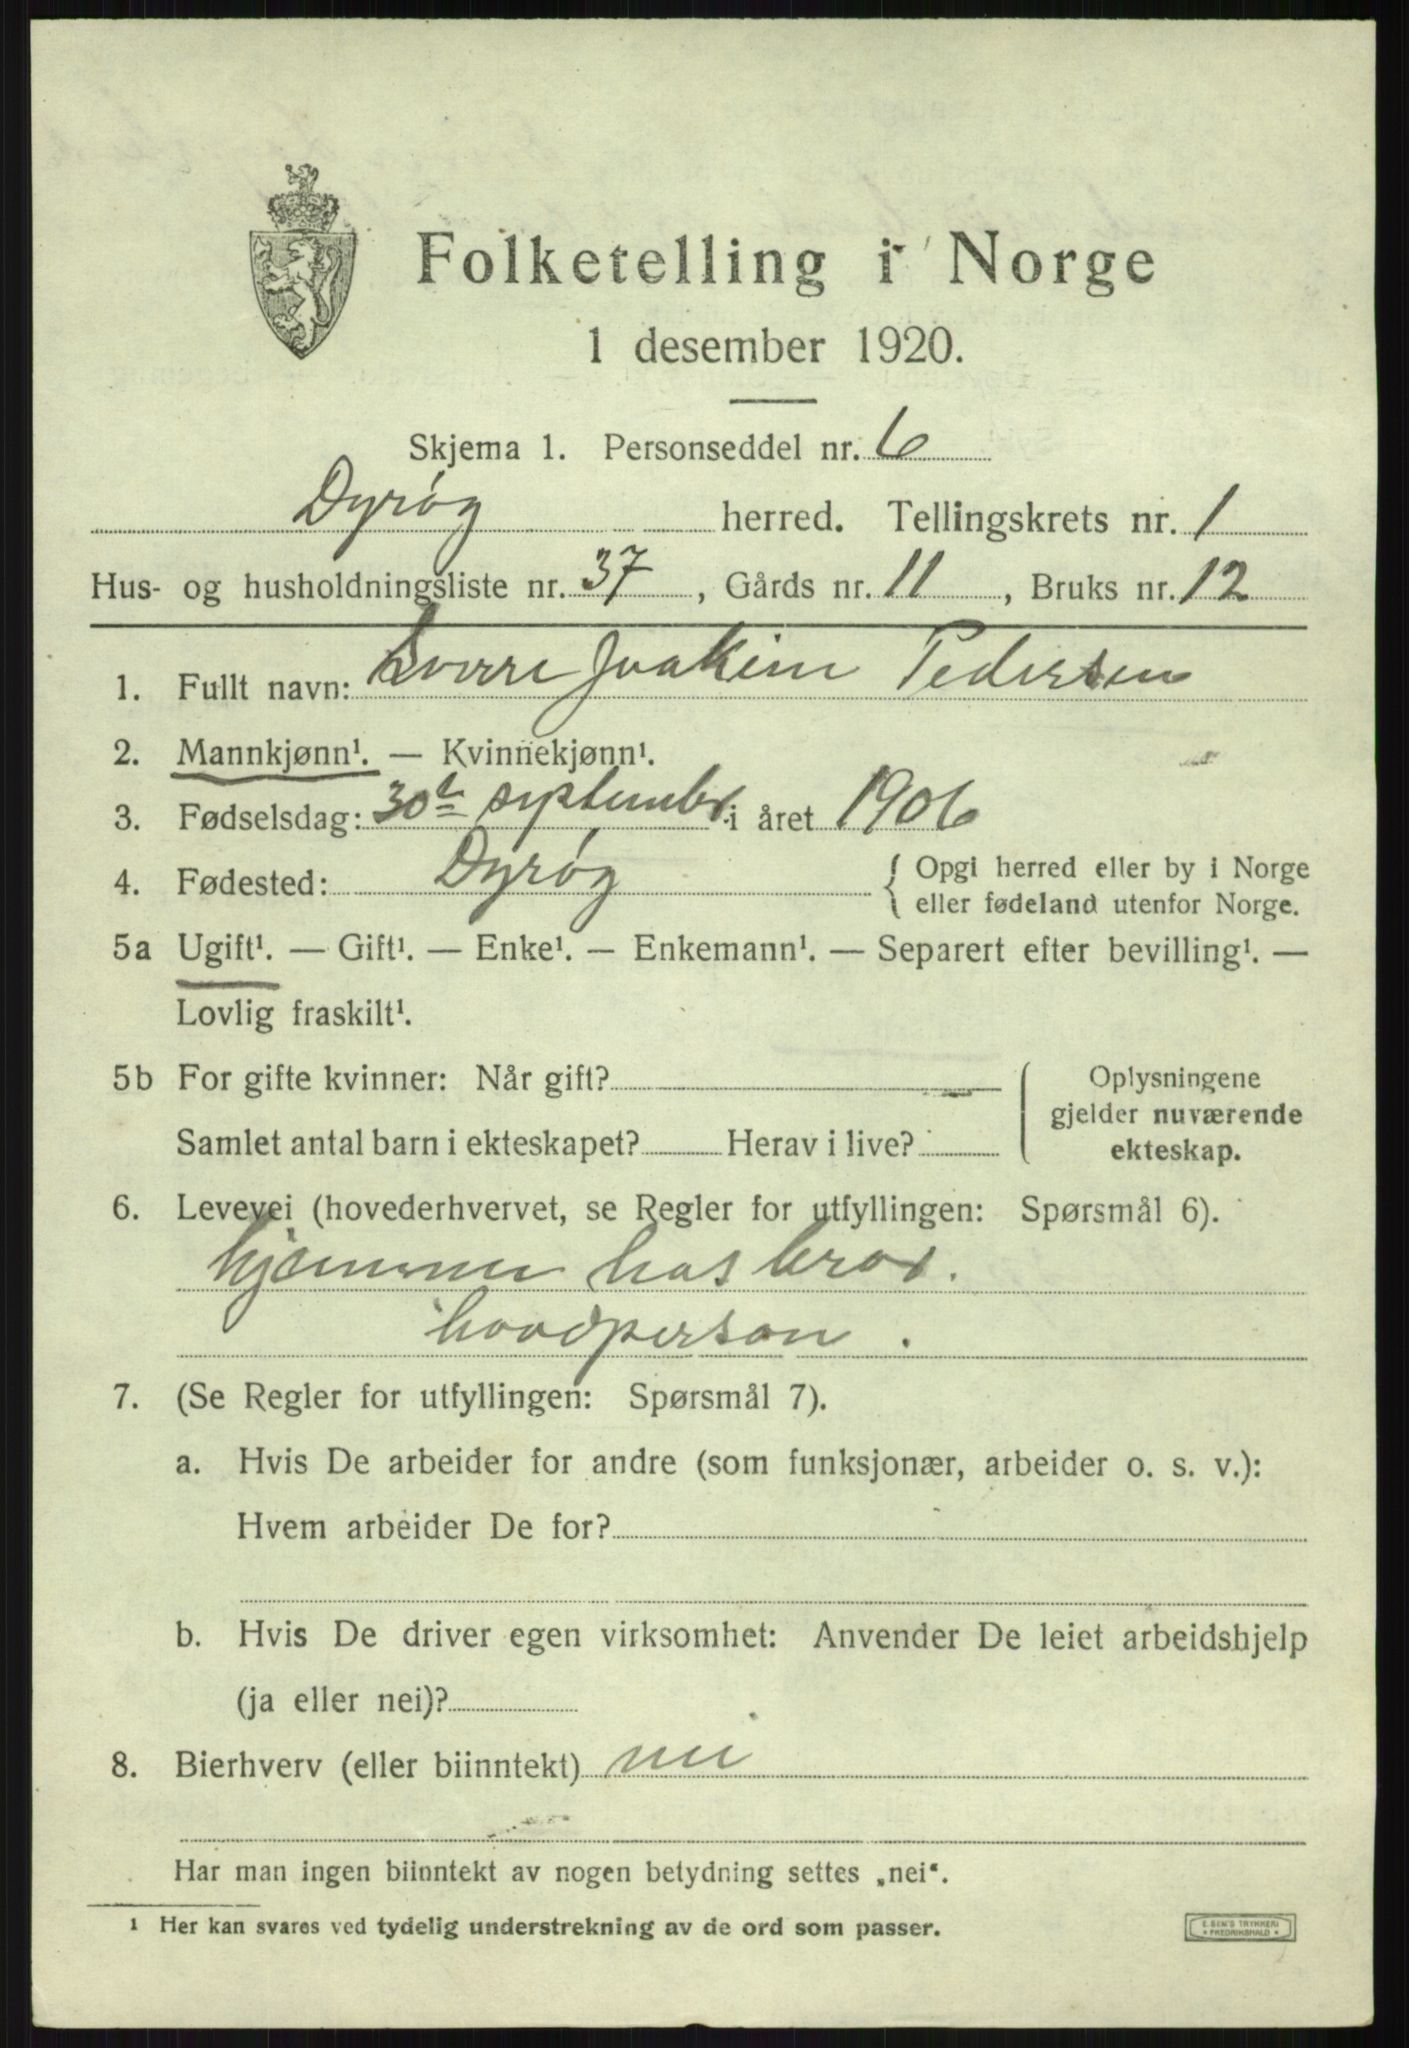 Folketelling i Norge
1 desember 1920.
Skjema 1. Personseddel nr. 6
Dyrøy herred. Tellingskrets nr. 1
Hus- og husholdningsliste nr. 37, Gårds nr. 11, Bruks nr. 12
1. Fullt navn: Sverre Joakim Pedersen
2. Mannkjønn¹. — Kvinnekjønn¹.
3. Fødselsdag: 30te september i året 1906
4. Fødested: Dyrøy { Opgi herred eller by i Norge
eller fødeland utenfor Norge.
5a Ugift¹. — Gift¹. — Enke¹. — Enkemann¹. — Separert efter bevilling¹. —
Lovlig fraskilt¹.
5b For gifte kvinner: Når gift?
Samlet antal barn i ekteskapet? Herav i live?
Oplysningene
gjelder nuværende
ekteskap.
6. Levevei (hovederhvervet, se Regler for utfyllingen: Spørsmål 6).
hjemme hos bror.
hovedperson.
7. (Se Regler for utfyllingen: Spørsmål 7).
a. Hvis De arbeider for andre (som funksjonær, arbeider o. s. v.):
Hvem arbeider De for?
b. Hvis De driver egen virksomhet: Anvender De leiet arbeidshjelp
(ja eller nei)?
8. Bierhverv (eller biinntekt) nei
Har man ingen biinntekt av nogen betydning settes „nei“.
¹ Her kan svares ved tydelig understrekning av de ord som passer.
E. SEM'S TRYKKERI
• FREDRIKSHALD •